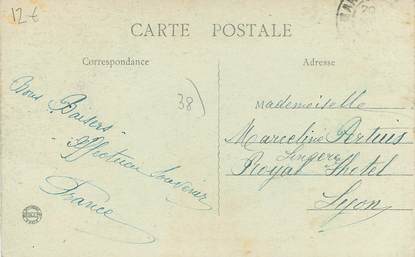 12€
CARTE POSTALE
Correspondance
Adresse
38)
Bons Baisers
Affectueux Souvenir
France
Mademoiselle
Marceline
Lingère
Royal Hotel
Lyon